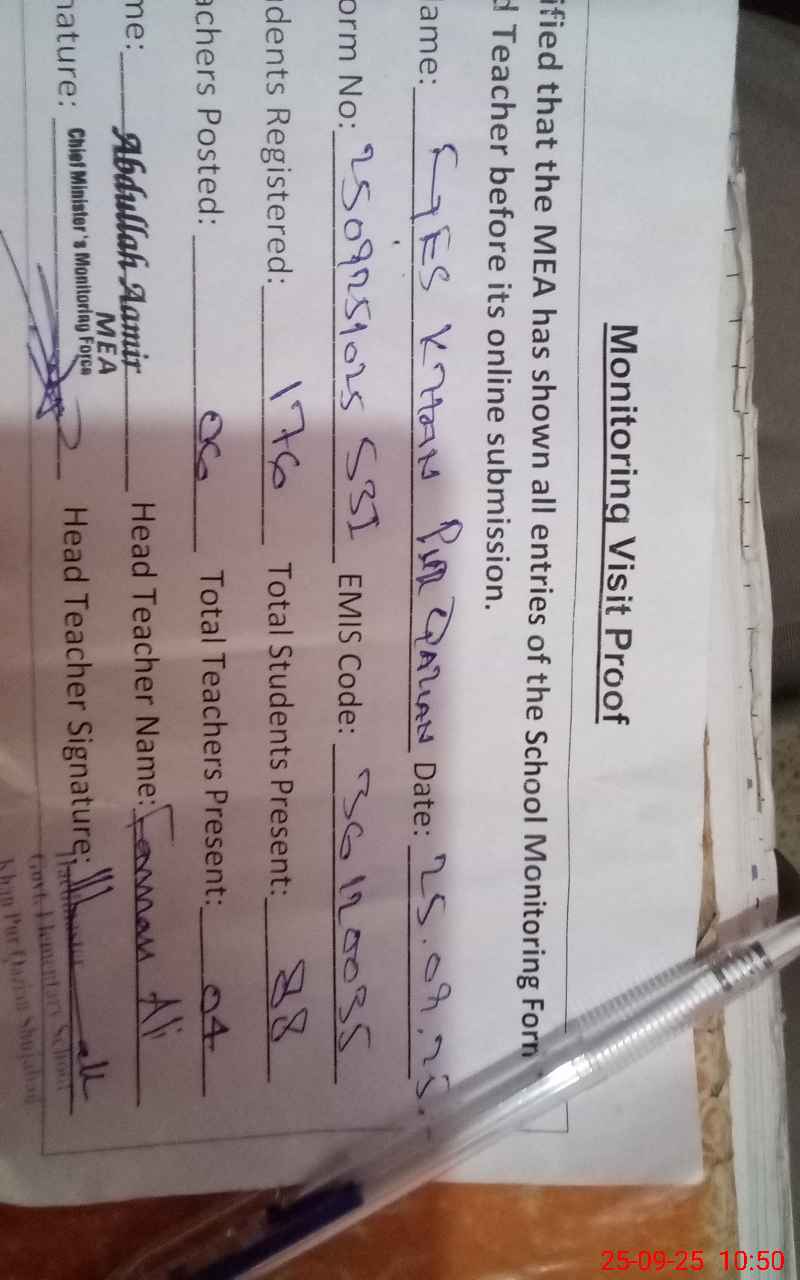 Monitoring Visit Proof
ified that the MEA has shown all entries of the School Monitoring Forn
d Teacher before its online submission.
ame: GES KHAN PUR QAZIAN Date: 25.09.25.
orm No: 25092591025 531 EMIS Code: 36120035
dents Registered: 176 Total Students Present: 88
achers Posted: 06 Total Teachers Present: 04
me: Abdullah Aamir Head Teacher Name: Ali
MEA
Chief Minister's Monitoring Force
nature: Head Teacher Signature:
Govt. Elementary School
Khan Pur Qazian Shujabad
25-09-25 10:50